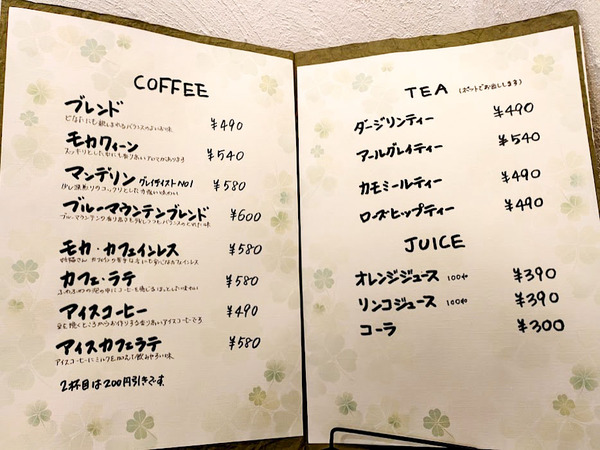 COFFEE
ブレンド ¥490
どなたにも親しまれるバランスのよいお味
モカワィーン ¥540
スッキリとした中にも香り高いアロマがあります
マンデリン グレイティストNO1 ¥580
少し深煎りのコックリとした力強い味わい
ブルーマウンテンブレンド ¥600
モカ・カフェインレス ¥580
カフェ・ラテ ¥580
アイスコーヒー ¥490
アイスカフェラテ ¥580
アイスコーヒーにミルクを加えた飲みやすい味
2杯目は200円引きです
TEA (ポットでお出しします)
ダージリンティー ¥490
アールグレイティー ¥540
カモミールティー ¥490
ローズヒップティー ¥490
JUICE
オレンジジュース 100% ¥390
リンゴジュース 100% ¥390
コーラ ¥300